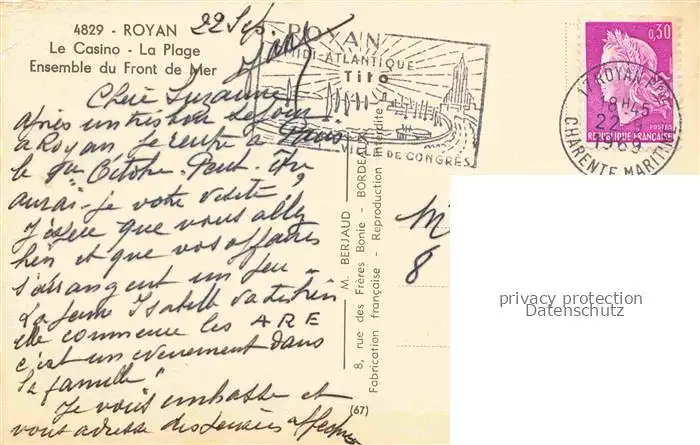 4829 - ROYAN
Le Casino - La Plage
Ensemble du Front de Mer
22 Sep.
Chère Suzanne
après un très bon séjour
à Royan je rentre à
le 1er Octobre. Peut-être
aurai-je votre visite,
J'espère que vous allez
bien et que vos affaires
s'arrangent un peu -
La jeune Isabelle va très bien
elle commence les ARE
c'est un évènement dans
la famille"
Je vous embrasse et
vous adresse des pensées affectueuses
(67)
M. BERJAUD
8, rue des Frères Bonie - BORDEAUX
Fabrication française - Reproduction interdite
ROYAN
MIDI-ATLANTIQUE
Tito
VILLE DE CONGRÈS
17 ROYAN
18H45
22-9
1969
CHARENTE MARITIME
0,30
POSTES
REPUBLIQUE FRANÇAISE
M
8
privacy protection
Datenschutz